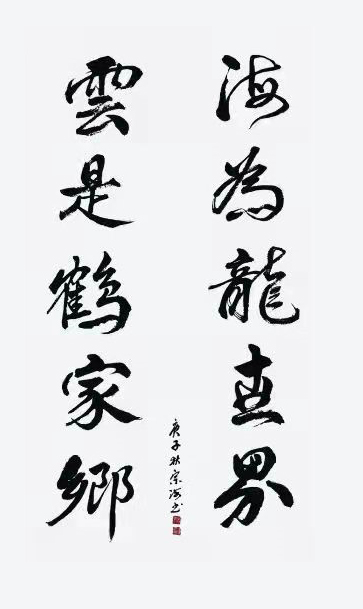 海為龍世界
雲是鶴家鄉
庚子秋宗海书